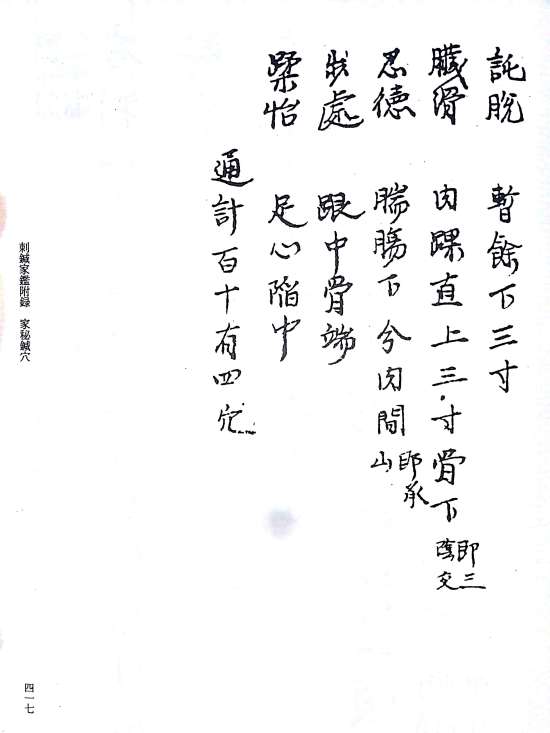 託脱 暫餘下三寸
臓滑 内踝直上三寸骨下 即三陰交
忍德 腨腸下分肉間 即承山
戕處 跟中骨端
蹂怡 足心陷中
通計百十有四穴
刺鍼家鑑附録 家秘鍼穴
四一七